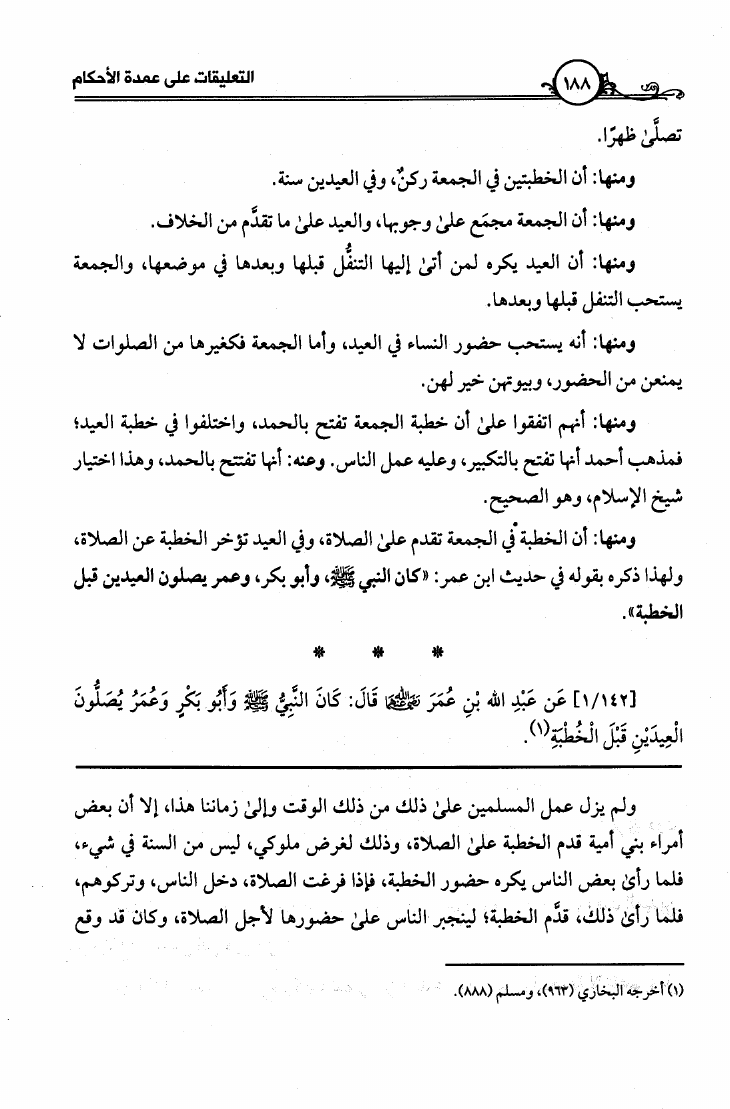 ١٨٨
التعليقات على عمدة الأحكام
تصلَّىٰ ظهرًا.
ومنها: أن الخطبتين في الجمعة ركنٌ، وفي العيدين سنة.
ومنها: أن الجمعة مجمَع علىٰ وجوبها، والعيد علىٰ ما تقدَّم من الخلاف.
ومنها: أن العيد يكره لمن أتىٰ إليها التنفُّل قبلها وبعدها في موضعها، والجمعة
يستحب التنفل قبلها وبعدها.
ومنها: أنه يستحب حضور النساء في العيد، وأما الجمعة فكغيرها من الصلوات لا
يمنعن من الحضور، وبيوتهن خير لهن.
ومنها: أنهم اتفقوا علىٰ أن خطبة الجمعة تفتح بالحمد، واختلفوا في خطبة العيد؛
فمذهب أحمد أنها تفتح بالتكبير، وعليه عمل الناس. وعنه: أنها تفتتح بالحمد، وهذا اختيار
شيخ الإسلام، وهو الصحيح.
ومنها: أن الخطبة في الجمعة تقدم علىٰ الصلاة، وفي العيد تؤخر الخطبة عن الصلاة،
ولهذا ذكره بقوله في حديث ابن عمر: «كان النبي ﷺ، وأبو بكر، وعمر يصلون العيدين قبل
الخطبة».
* * *
[١/١٤٢] عَن عَبْدِ الله بْنِ عُمَرَ رَضِيَ اللهُ عَنْهُمَا قَالَ: كَانَ النَّبِيُّ ﷺ وَأَبُو بَكْرٍ وَعُمَرُ يُصَلُّونَ
الْعِيدَيْنِ قَبْلَ الْخُطْبَةِ(١).
ولم يزل عمل المسلمين علىٰ ذلك من ذلك الوقت وإلىٰ زماننا هذا، إلا أن بعض
أمراء بني أمية قدم الخطبة علىٰ الصلاة، وذلك لغرض ملوكي، ليس من السنة في شيء،
فلما رأىٰ بعض الناس يكره حضور الخطبة، فإذا فرغت الصلاة، دخل الناس، وتركوهم،
فلما رأىٰ ذلك، قدَّم الخطبة؛ لينجبر الناس علىٰ حضورها لأجل الصلاة، وكان قد وقع
(١) أخرجه البخاري (٩٦٣)، ومسلم (٨٨٨).